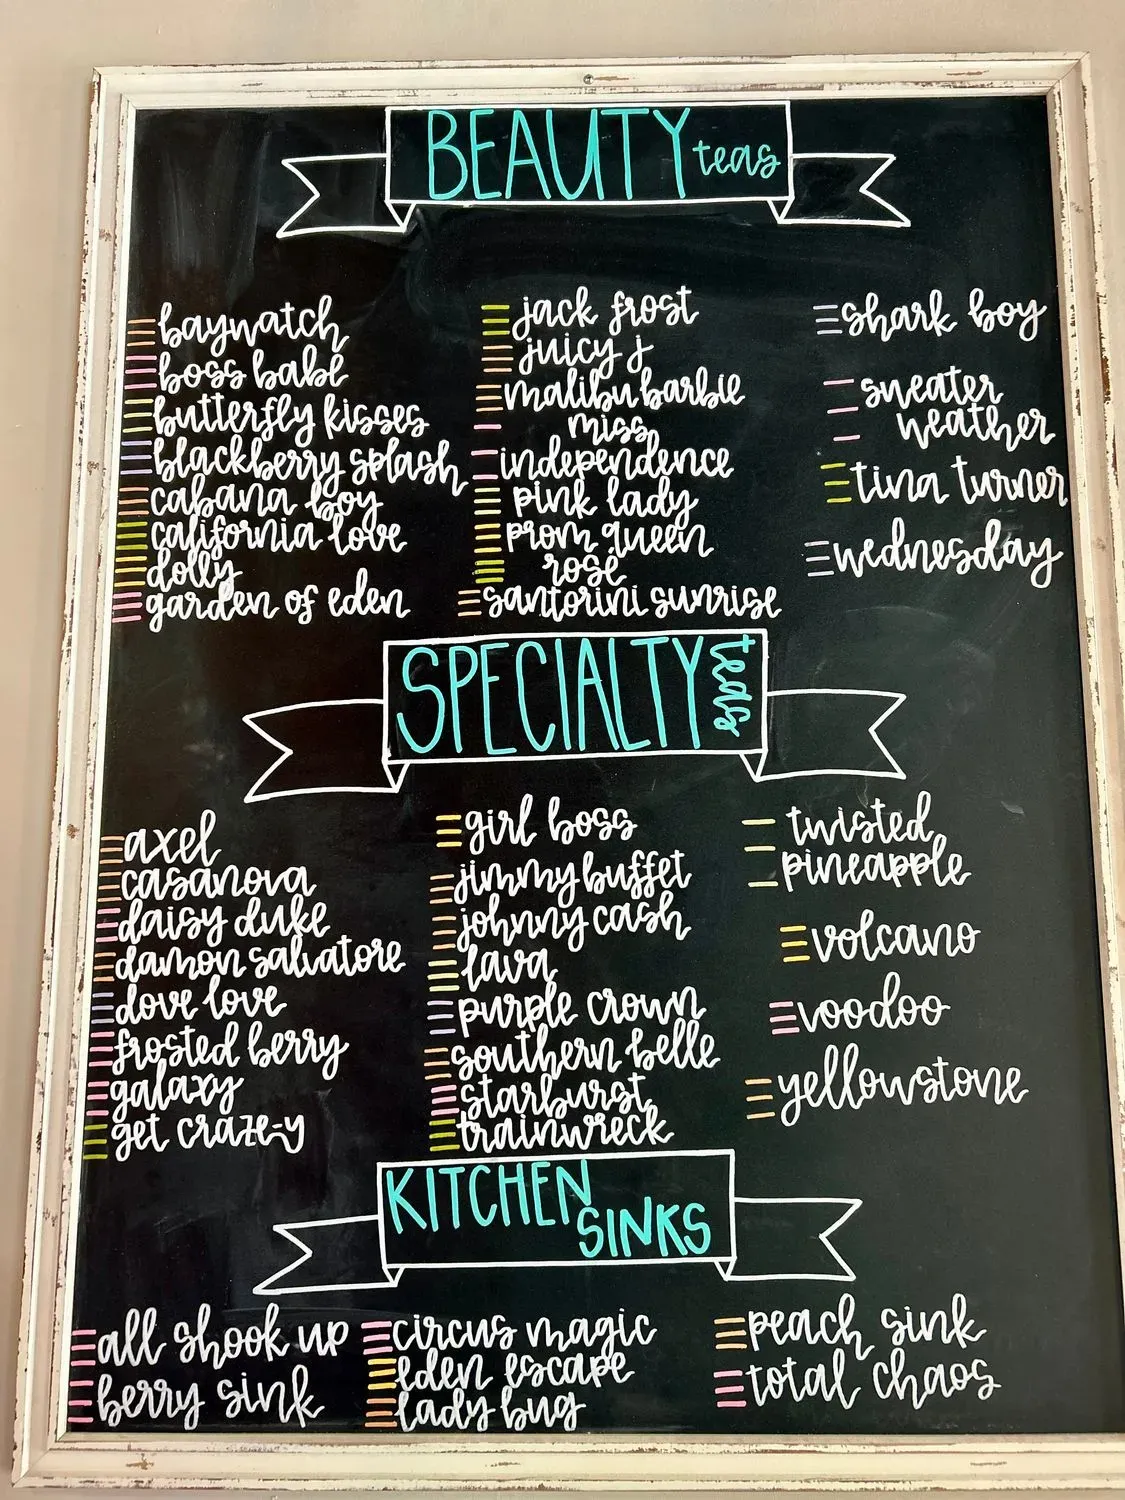 BEAUTY teas
baywatch
boss babe
butterfly kisses
blackberry splash
cabana boy
california love
dolly
garden of eden
jack frost
juicy j
malibu barbie
miss
independence
pink lady
prom queen
rosé
santorini sunrise
shark boy
sweater
weather
tina turner
wednesday
SPECIALTY teas
axel
casanova
daisy duke
damon salvatore
dove love
frosted berry
galaxy
get craze-y
girl boss
jimmy buffet
johnny cash
lava
purple crown
southern belle
starburst
trainwreck
twisted
pineapple
volcano
voodoo
yellowstone
KITCHEN
SINKS
all shook up
berry sink
circus magic
eden escape
lady bug
peach sink
total chaos